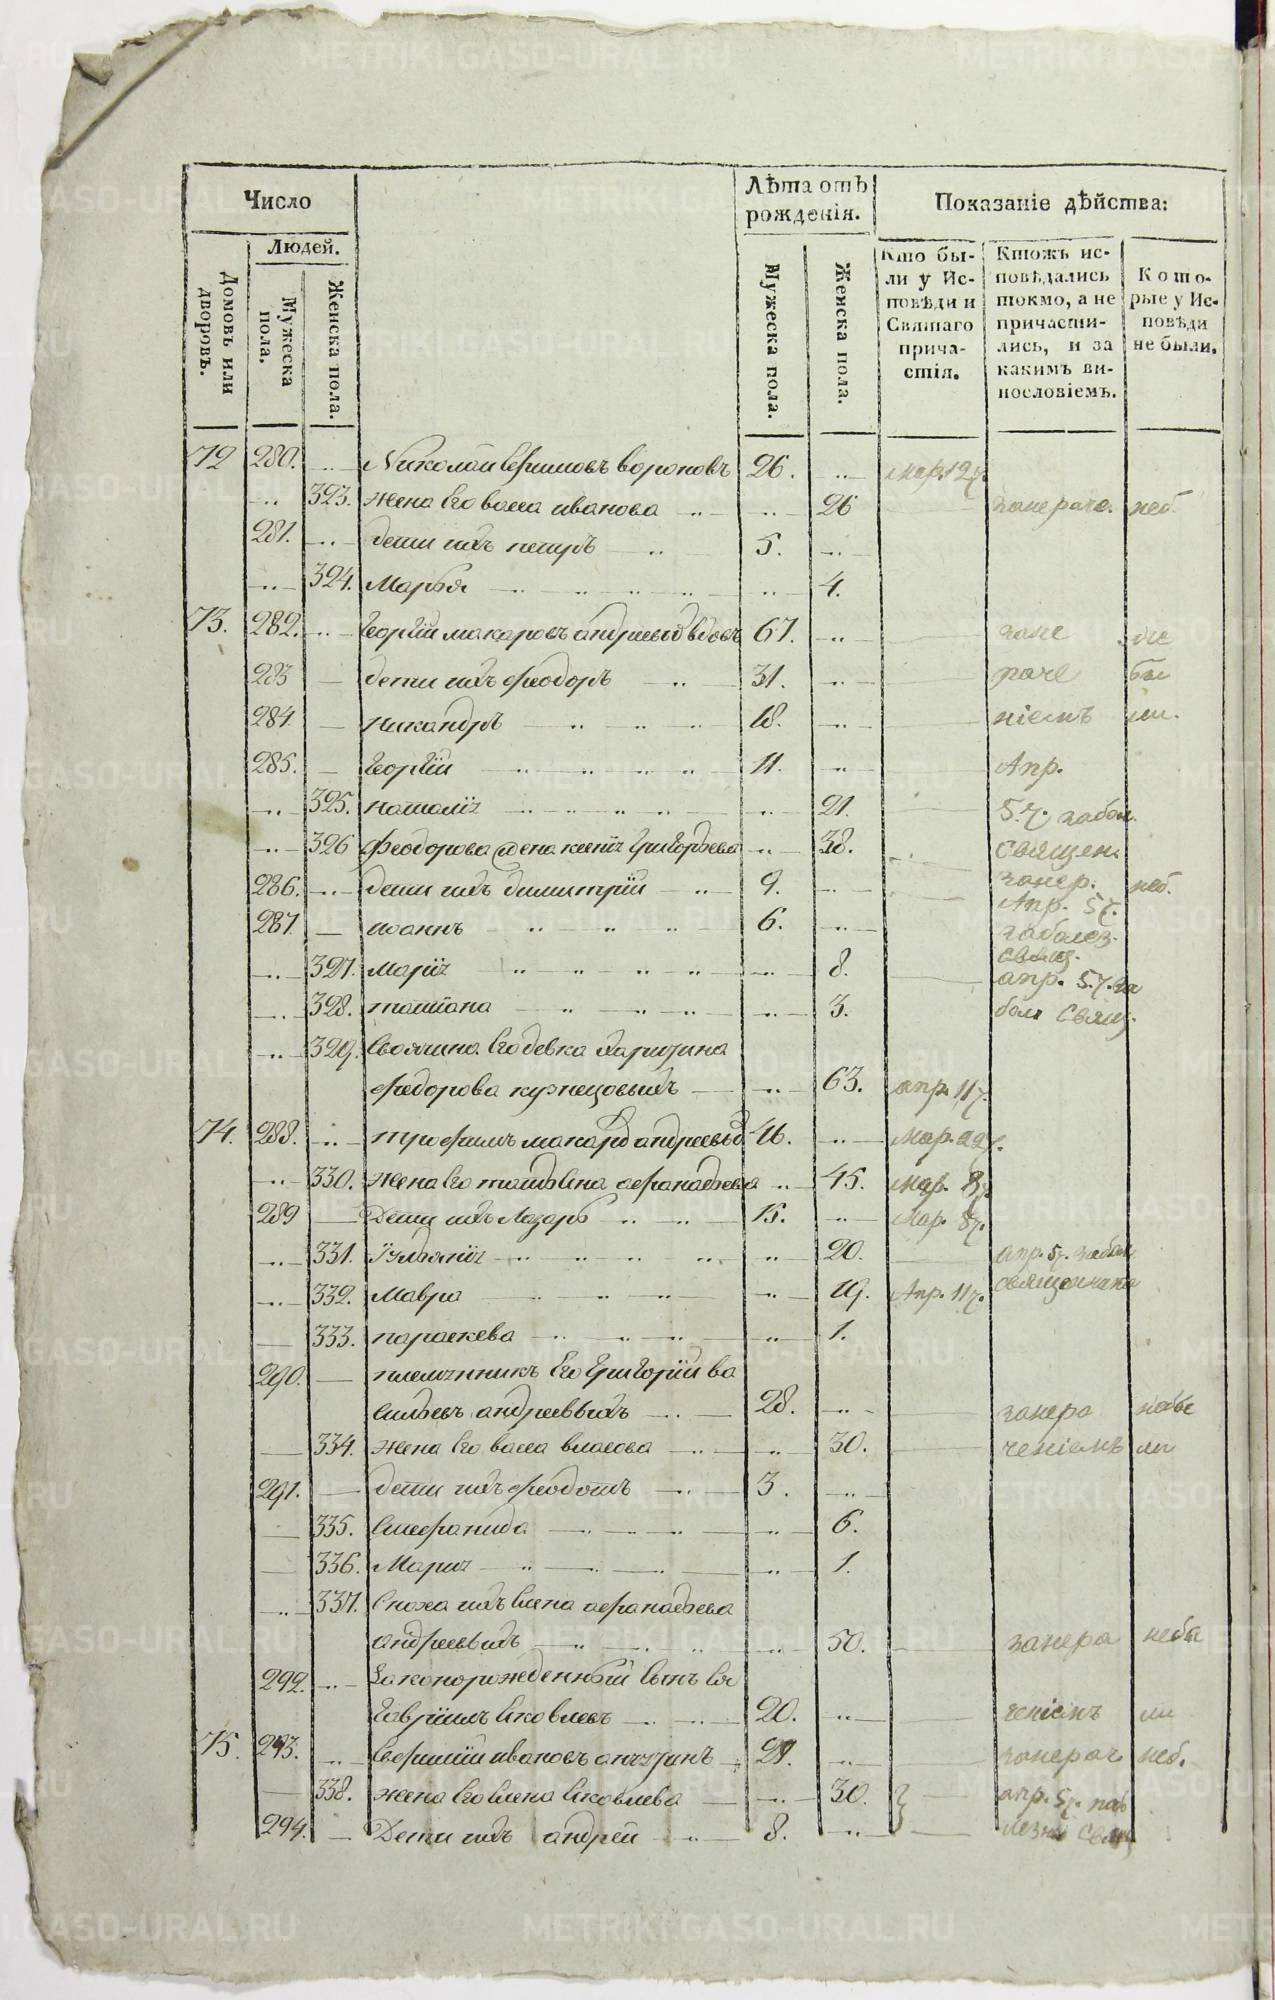 Число
Людей.
Домовъ или дворовъ.
Мужеска пола.
Женска пола.
Лѣта отъ рожденія.
Мужеска пола.
Женска пола.
Показаніе дѣйства:
Кто бы-
ли у Ис-
повѣди и
Святаго
прича-
стія.
Ктожъ ис-
повѣдались
токмо, а не
причасти-
лись, и за
какимъ ви-
нословіемъ.
Кото-
рые у Ис-
повѣди
не были.
72 280. Николай Ефимовъ вороновъ 26. мар. 12 ч.
323. жена Его васса иванова 26 занераче. неб.
281. дети ихъ петръ 5.
324. Марья 4.
73. 282. Георгiй макаровъ андреевыхъ вдовъ 67. зане не
283 дети ихъ феодоръ 31. раче бы
284 никандръ 18. ніемъ ли.
285. Георгiй 11. Апр.
325. наталiя 21. 5. ч. забол.
326 Феодорова жена ксенiя григорьева 38. священ.
286. дети ихъ димитрiй 9. занер. неб.
Апр. 5 ч.
287. иоаннъ 6. заболез.
свящ.
327. марiя 8. апр. 5. ч. за
328. татiана 3. бол. свящ.
329. Своячина Его девка харитина
федорова кузнецовыхъ 63. апр. 11 ч.
74. 288. трофимъ макаровъ андреевыхъ 46. Мар. 22 ч.
330. жена Его татьяна афанасьева 45. Мар. 8 ч.
289 Дети ихъ Лазарь 15. Мар. 8 ч.
331. Iульянiя 20. апр. 5 ч. забол
332. Мавра 19. Апр. 11 ч. священника
333. параскева 1.
290. племянникъ Его Григорiй ва
сильевъ андреевыхъ 28. занера небы
334. жена Его васса власова 30. ченіемъ ли
291. дети ихъ феодотъ 3.
335. Стефанида 6.
336. Мария 1.
337. Сноха ихъ Елена афанасьева
андреевыхъ 50. занера небы
292. Законорожденный сынъ Ея
Гаврiилъ Яковлевъ 20. ченіемъ ли
75. 293. 29. занерач неб.
338. жена Его Елена Яковлева 30. апр. 5 ч.
294. Дети ихъ андрей 8.
METRIKI.GASO-URAL.RU